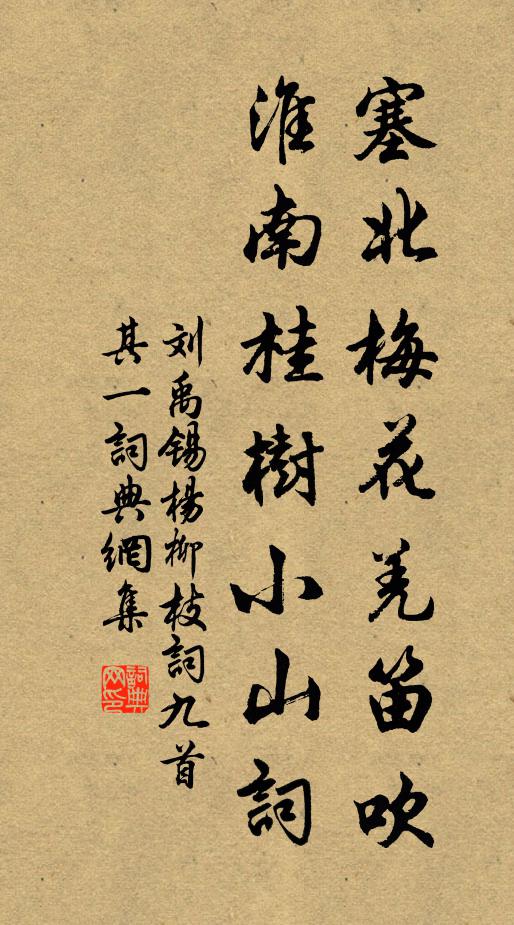 塞北梅花羌笛吹
淮南桂樹小山詞
刘禹錫楊柳枝詞九首
其一詞典網集
詞典
网印